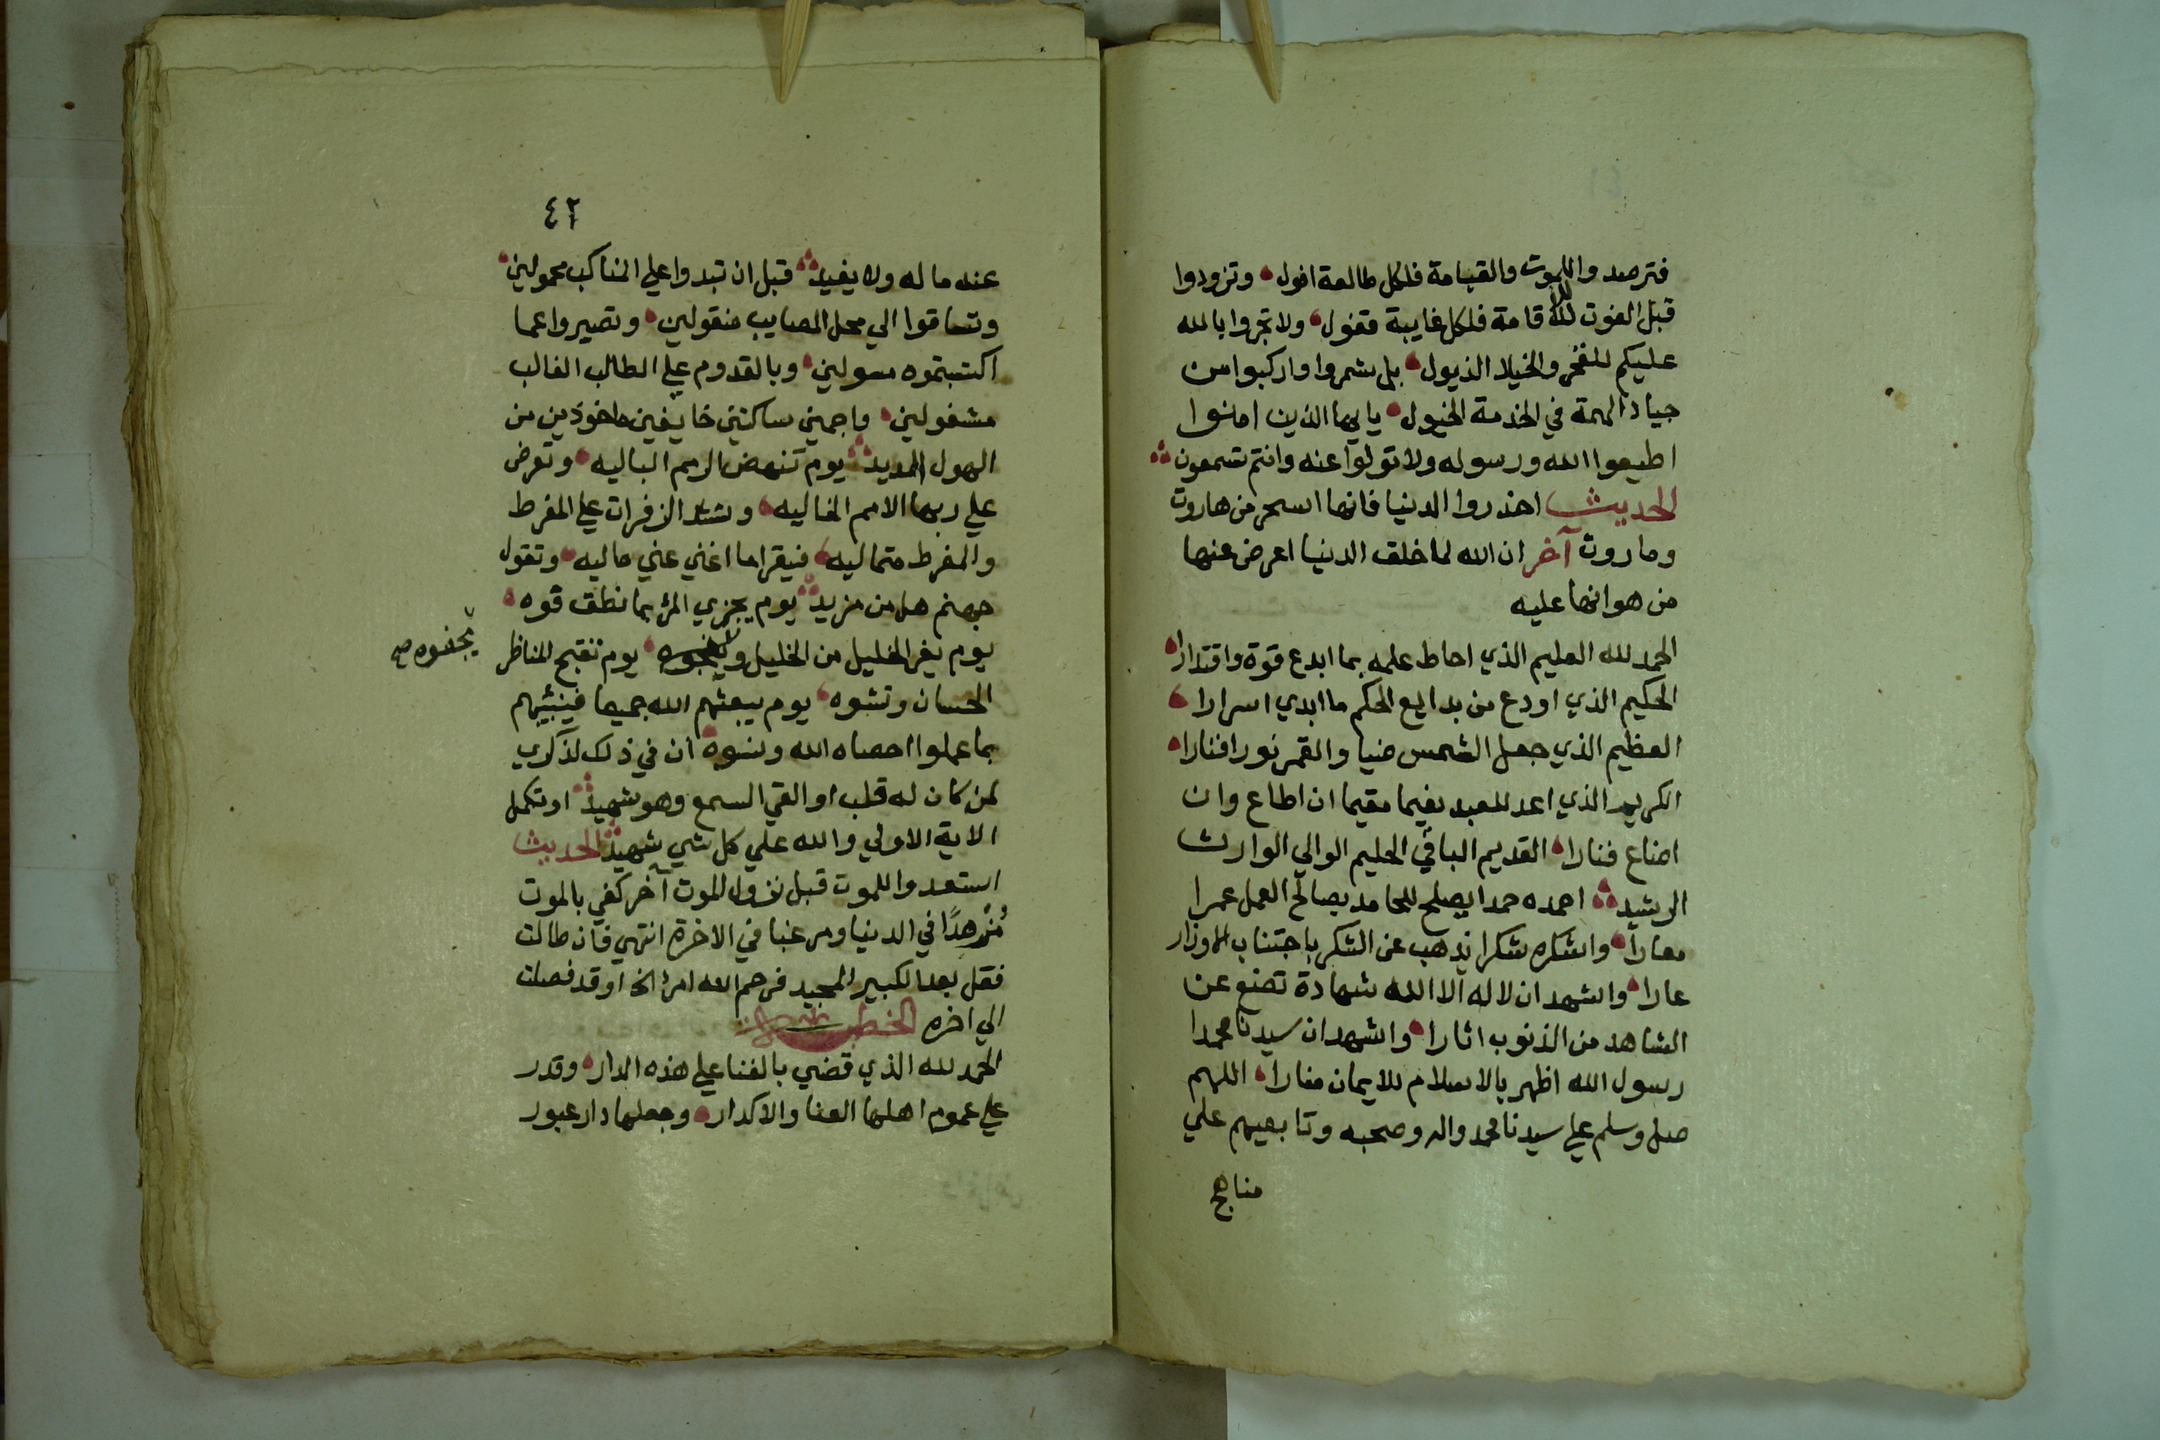 فترصدوا للموت والقيامة فلكل طالعة افول وتزودوا
قبل الفوت للاقامة فلكل غايبة قفول ولا تجروا بالله
عليكم للفخر والخيلا الذيول بل شمروا واركبوا من
جياد الهمة في الخدمة الخيول يايها الذين امنوا
اطيعوا الله ورسوله ولا تولوا عنه وانتم تسمعون
الحديث احذروا الدنيا فانها اسحر من هاروت
وماروت آخر ان الله لما خلق الدنيا اعرض عنها
من هوانها عليه
الحمد لله العليم الذي احاط علمه بما ابدع قوة واقتدارا
الحكيم الذي اودع من بدايع الحكم ما ابدي اسرارا
العظيم الذي جعل الشمس ضيا والقمر نورا فنارا
الكريم الذي اعد للعبد نعيما مقيما ان اطاع وان
اضاع فنارا القديم الباقي الحليم الوالي الوارث
الرشيد احمده حمدا يصلح للحامد بصالح العمل عمرا
معارا واشكره شكرا يذهب عن الشكر باجتناب الاوزار
عارا واشهد ان لا اله الا الله شهادة تضع عن
الشاهد من الذنوب اثارا واشهد ان سيدنا محمدا
رسول الله اظهر بالاسلام للايمان منارا اللهم
صل وسلم علي سيدنا محمد واله وصحبه وتابعيهم علي
مناهج
٤٢
عنده ماله ولا يفيد قبل ان تبدوا علي المناكب محمولين
وتساقوا الي محل المصايب منقولين وتصيروا عما
اكتسبتموه مسولين وبالقدوم علي الطالب الغالب
مشغولين واجمين ساكنين خايفين ماخوذين من
الهول المديد يوم تنهض الرمم الباليه وتعرض
علي ربها الامم الخاليه وتشتد الزفرات علي المفرط
والمفرط متماليه فيقرا ما اغني عني ماليه وتقول
جهنم هل من مزيد يوم يجزي المرء بما نطق فوه
يوم يفر الخليل من الخليل و يوم تقبح للناظر
يجفوه صح
الحسان وتشوه يوم يبعثهم الله جميعا فينبئهم
بما عملوا احصاه الله ونسوه ان في ذلك لذكري
لمن كان له قلب او القي السمع وهو شهيد او تكمل
الاية الاولي والله علي كل شي شهيد الحديث
استعدوا للموت قبل نزول الموت آخر كفي بالموت
مُزْهدًا في الدنيا ومرغبا في الاخرة انتهي فان طالت
فقل بعد الكبير المجيد فرحم الله امرا الخ او قد فصلت
الي اخره
الحمد لله الذي قضي بالفنا علي هذه الدار وقدر
علي عموم اهلها العنا والاكدار وجعلها دار عبور